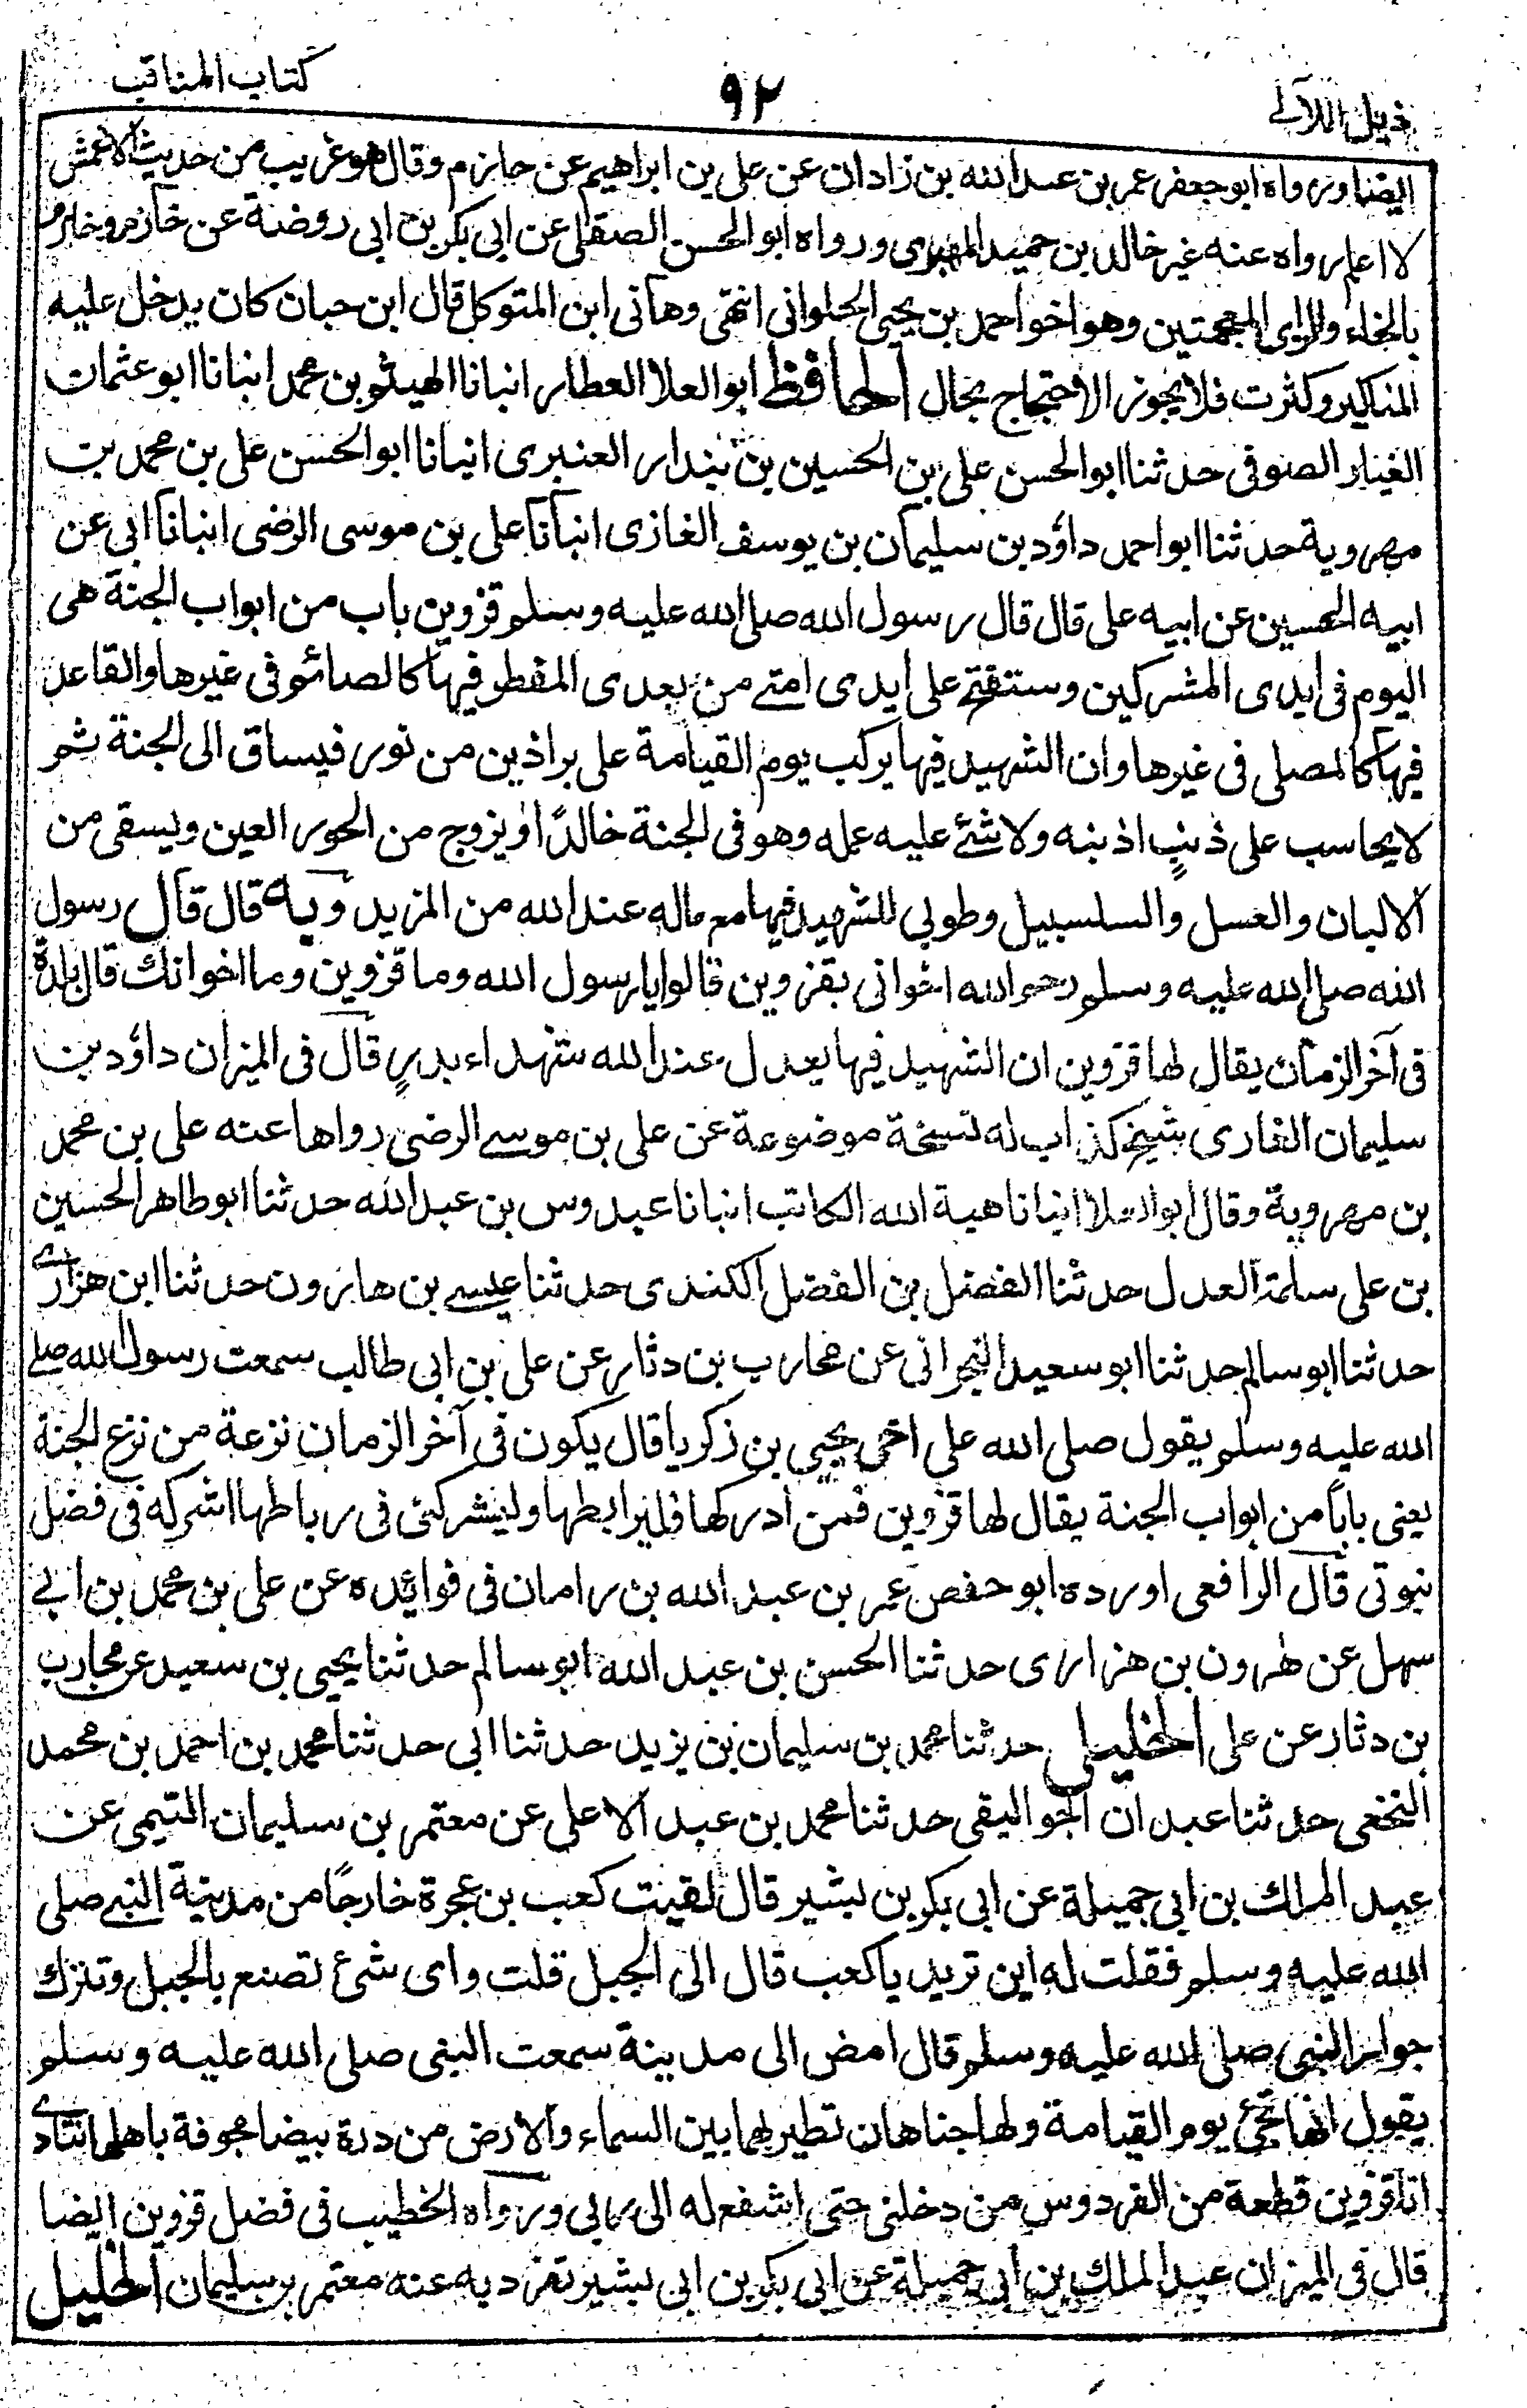 ذيل اللآلے
٩٢
كتاب المناقب
ايضا ورواه ابو جعفر عمر بن عبد الله بن زادان عن على بن ابراهيم عن حازم وقال هو غريب من حديث الاعمش
لا اعلم رواه عنه غير خالد بن حميد المهرى ورواه ابو الحسن الصقلى عن ابى بكر بن ابى روضة عن خازم وخازم
بالخاء والزاى المعجمتين وهو اخو احمد بن يحيى الحلوانى انتهى وهانى ابن المتوكل قال ابن حبان كان يدخل عليه
المناكير وكثرت فلا يجوز الاحتجاج بحال الحافظ ابو العلا العطار انبانا الهيثم بن محمد انبانا ابو عثمان
الصوفى حدثنا ابو الحسن على بن الحسين بن بندار العنبرى انبانا ابو الحسن على بن محمد بن
مهروية حدثنا ابو احمد داؤد بن سليمان بن يوسف الغازى انبانا على بن موسى الرضى انبانا ابى عن
ابيه الحسين عن ابيه على قال قال رسول الله صلى الله عليه وسلم قزوين باب من ابواب الجنة هى
اليوم فى ايدى المشركين وستفتح على ايدى امتے من بعدى المفطر فيها كالصائم فى غيرها والقاعد
فيها كالمصلى فى غيرها وان الشهيد فيها يركب يوم القيامة على براذين من نور فيساق الى الجنة ثم
لا يحاسب على ذنبٍ اذنبه ولا شئے عليه عمله وهو فى الجنة خالدًا ويزوج من الحور العين ويسقى من
الالبان والعسل والسلسبيل وطوبى للشهيد فيها مع ماله عند الله من المزيد وبه قال قال رسول
الله صلى الله عليه وسلم رحم الله اخوانى بقزوين قالوا يا رسول الله وما قزوين وما اخوانك قال بلدة
فى آخر الزمان يقال لها قزوين ان الشهيد فيها يعدل عند الله شهداء بدرٍ قال فى الميزان داؤد بن
سليمان الغازى شيخ كذاب له نسخة موضوعة عن على بن موسے الرضى رواها عنه على بن محمد
بن مهروية وقال ابو العلا انبانا هبة الله الكاتب انبانا عبدوس بن عبد الله حدثنا ابو طاهر الحسين
بن على سلمة العدل حدثنا الفضل بن الفضل الكندى حدثنا عيسے بن هارون حدثنا ابن هزارے
حدثنا ابو سالم حدثنا ابو سعيد النجرانى عن محارب بن دثار عن على بن ابى طالب سمعت رسول الله صلے
الله عليه وسلم يقول صلى الله على اخى يحيى بن زكريا قال يكون فى آخر الزمان نزعة من نزع الجنة
يعنى بابًا من ابواب الجنة يقال لها قزوين فمن ادركها فليرابطها وليشركنى فى رباطها اشركه فى فضل
نبوتى قال الرافعى اورده ابو حفص عمر بن عبد الله بن رامان فى فوائده عن على بن محمد بن ابے
سهل عن هٰرون بن هزارى حدثنا الحسن بن عبد الله ابو سالم حدثنا يحيى بن سعيد عن محارب
بن دثار عن على الخليلى حدثنا محمد بن سليمان بن يزيد حدثنا ابى حدثنا محمد بن احمد بن محمد
النخعى حدثنا عبدان الجواليقى حدثنا محمد بن عبد الاعلى عن معتمر بن سليمان التيمى عن
عبد الملك بن ابى جميلة عن ابى بكر بن بشير قال لقيت كعب بن عجرة خارجًا من مدينة النبے صلى
الله عليه وسلم فقلت له اين تريد يا كعب قال الى الجبل قلت واى شئ تصنع بالجبل وتترك
جوار النبى صلى الله عليه وسلم قال امض الى مدينة سمعت النبى صلى الله عليه وسلم
يقول انها تجئ يوم القيامة ولها جناحان تطير بهما بين السماء والارض من درة بيضا مجوفة باهلها تنادے
انا قزوين قطعة من الفردوس من دخلنى حتى اشفع له الى ربى ورواه الخطيب فى فضل قزوين ايضا
قال فى الميزان عبد الملك بن ابى جميلة عن ابى بكر بن ابى بشير تفرد به عنه معتمر بن سليمان الخليل